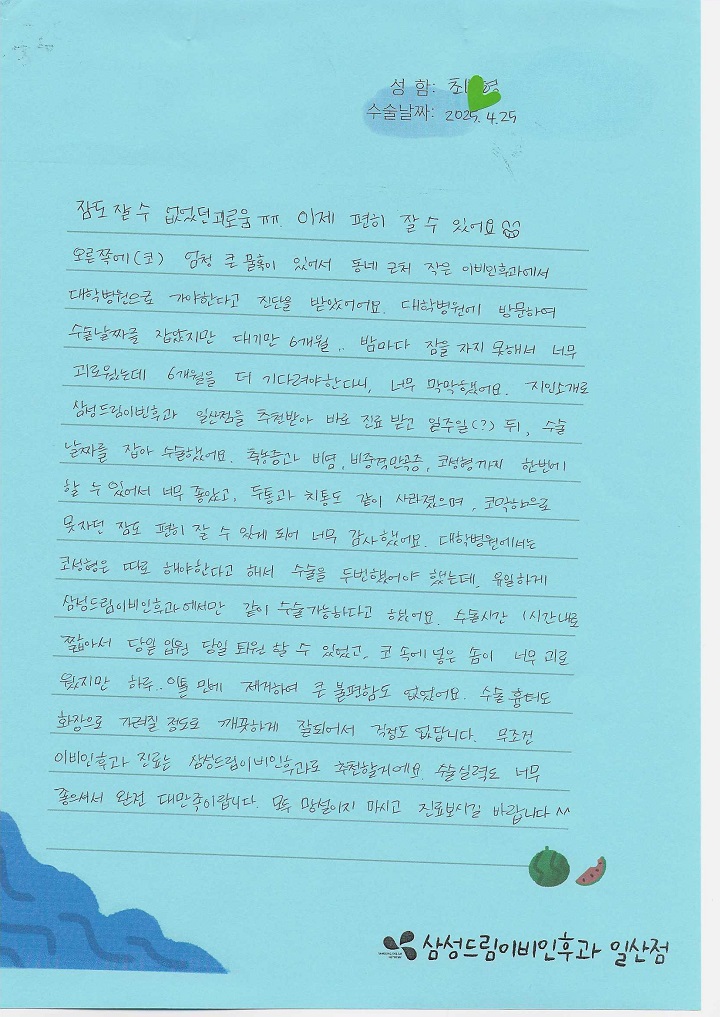 성 함: 최 영
수술날짜: 2025. 4. 25
잠도 잘 수 없었던 괴로움 ㅠㅠ. 이제 편히 잘 수 있어요
오른쪽에(코) 엄청 큰 물혹이 있어서 동네 근처 작은 이비인후과에서
대학병원으로 가야한다고 진단을 받았어어요. 대학병원에 방문하여
수술날짜를 잡았지만 대기만 6개월.. 밤마다 잠을 자지 못해서 너무
괴로웠는데 6개월을 더 기다려야한다니, 너무 막막했어요. 지인소개로
삼성드림이비인후과 일산점을 추천받아 바로 진료 받고 일주일(?) 뒤, 수술
날짜를 잡아 수술했어요. 축농증과 비염, 비중격만곡증, 코성형까지 한번에
할 수 있어서 너무 좋았고, 두통과 치통도 같이 사라졌으며, 코막힘으로
못자던 잠도 편히 잘 수 있게 되어 너무 감사했어요. 대학병원에서는
코성형은 따로 해야한다고 해서 수술을 두번했어야 했는데, 유일하게
삼성드림이비인후과에서만 같이 수술가능하다고 하셨어요. 수술시간 1시간내로
짧아서 당일 입원 당일 퇴원 할 수 있었고, 코 속에 넣은 솜이 너무 괴로
웠지만 하루.. 이틀 만에 제거하여 큰 불편함도 없었어요. 수술 흉터도
화장으로 가려질 정도로 깨끗하게 잘되어서 걱정도 없답니다. 무조건
이비인후과 진료는 삼성드림이비인후과로 추천할게에요. 수술실력도 너무
좋으셔서 완전 대만족이랍니다. 모두 망설이지 마시고 진료보시길 바랍니다 ^^
삼성드림이비인후과 일산점